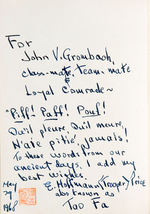 For
John V. Grombach,
class-mate, team-mate
Loyal Comrade ~
"Piff! Paff! Pouf!
Qu'il pleure, Qu'il meure,
N'aie pitié, jamais!
To these words from our
ancient days, I add my
best wishes
E. Hoffmann (Trooper) Price
also known as
Tao Fa
May
1968